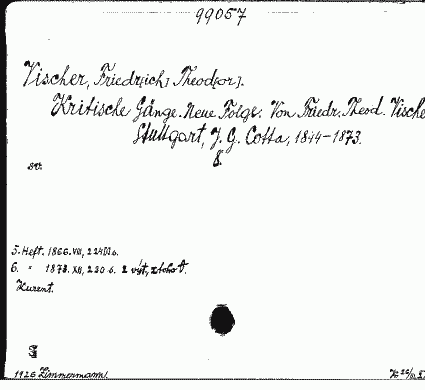 99057
Vischer, Friedr[ich] Theod[or].
Kritische Gänge. Neue Folge. Von Friedr. Theod. Vische
Stuttgart, J. G. Cotta, 1844-1873.
8.
sv.
5. Heft. 1866. VIII, 224 s.
6. " 1873. XII, 230 s. 2 výt, z toho
Kurent.
1926 Zimmermann